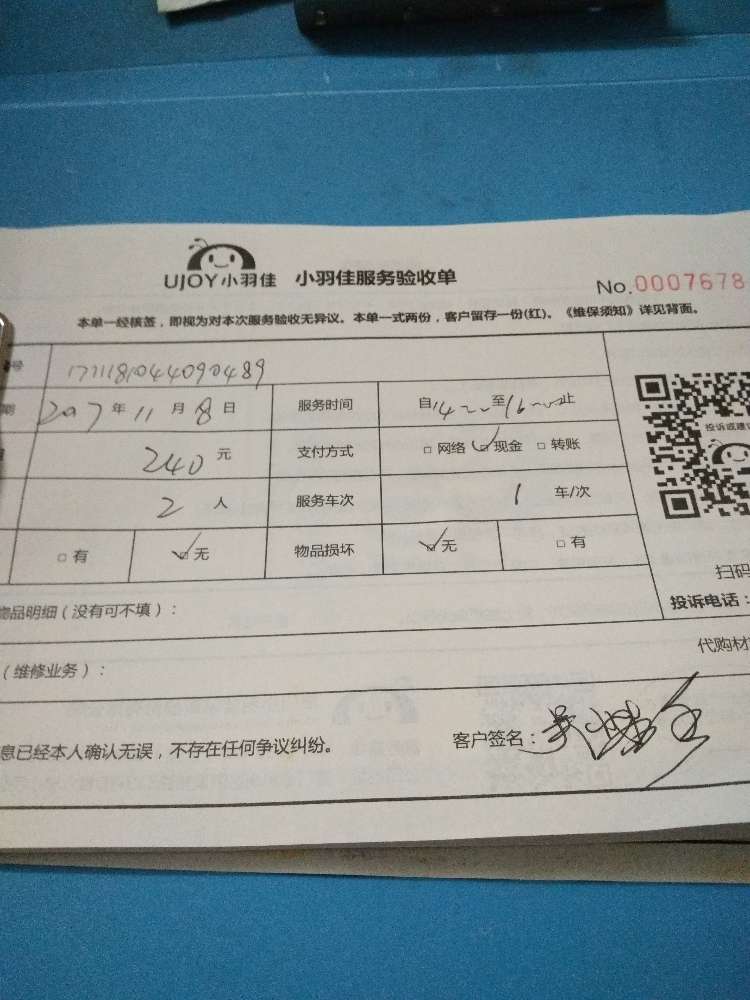 UJOY小羽佳 小羽佳服务验收单 No.0007678
本单一经核签，即视为对本次服务验收无异议。本单一式两份，客户留存一份(红)。《维保须知》详见背面。
号 1711181044090489
期 2017年11月8日 服务时间 自14~~至16~~止
投诉或建议
240元 支付方式 □网络 ☑现金 □转账
2人 服务车次 1车/次
□有 ☑无 物品损坏 ☑无 □有
扫码
物品明细（没有可不填）： 投诉电话：
（维修业务）： 代购材
息已经本人确认无误，不存在任何争议纠纷。 客户签名：